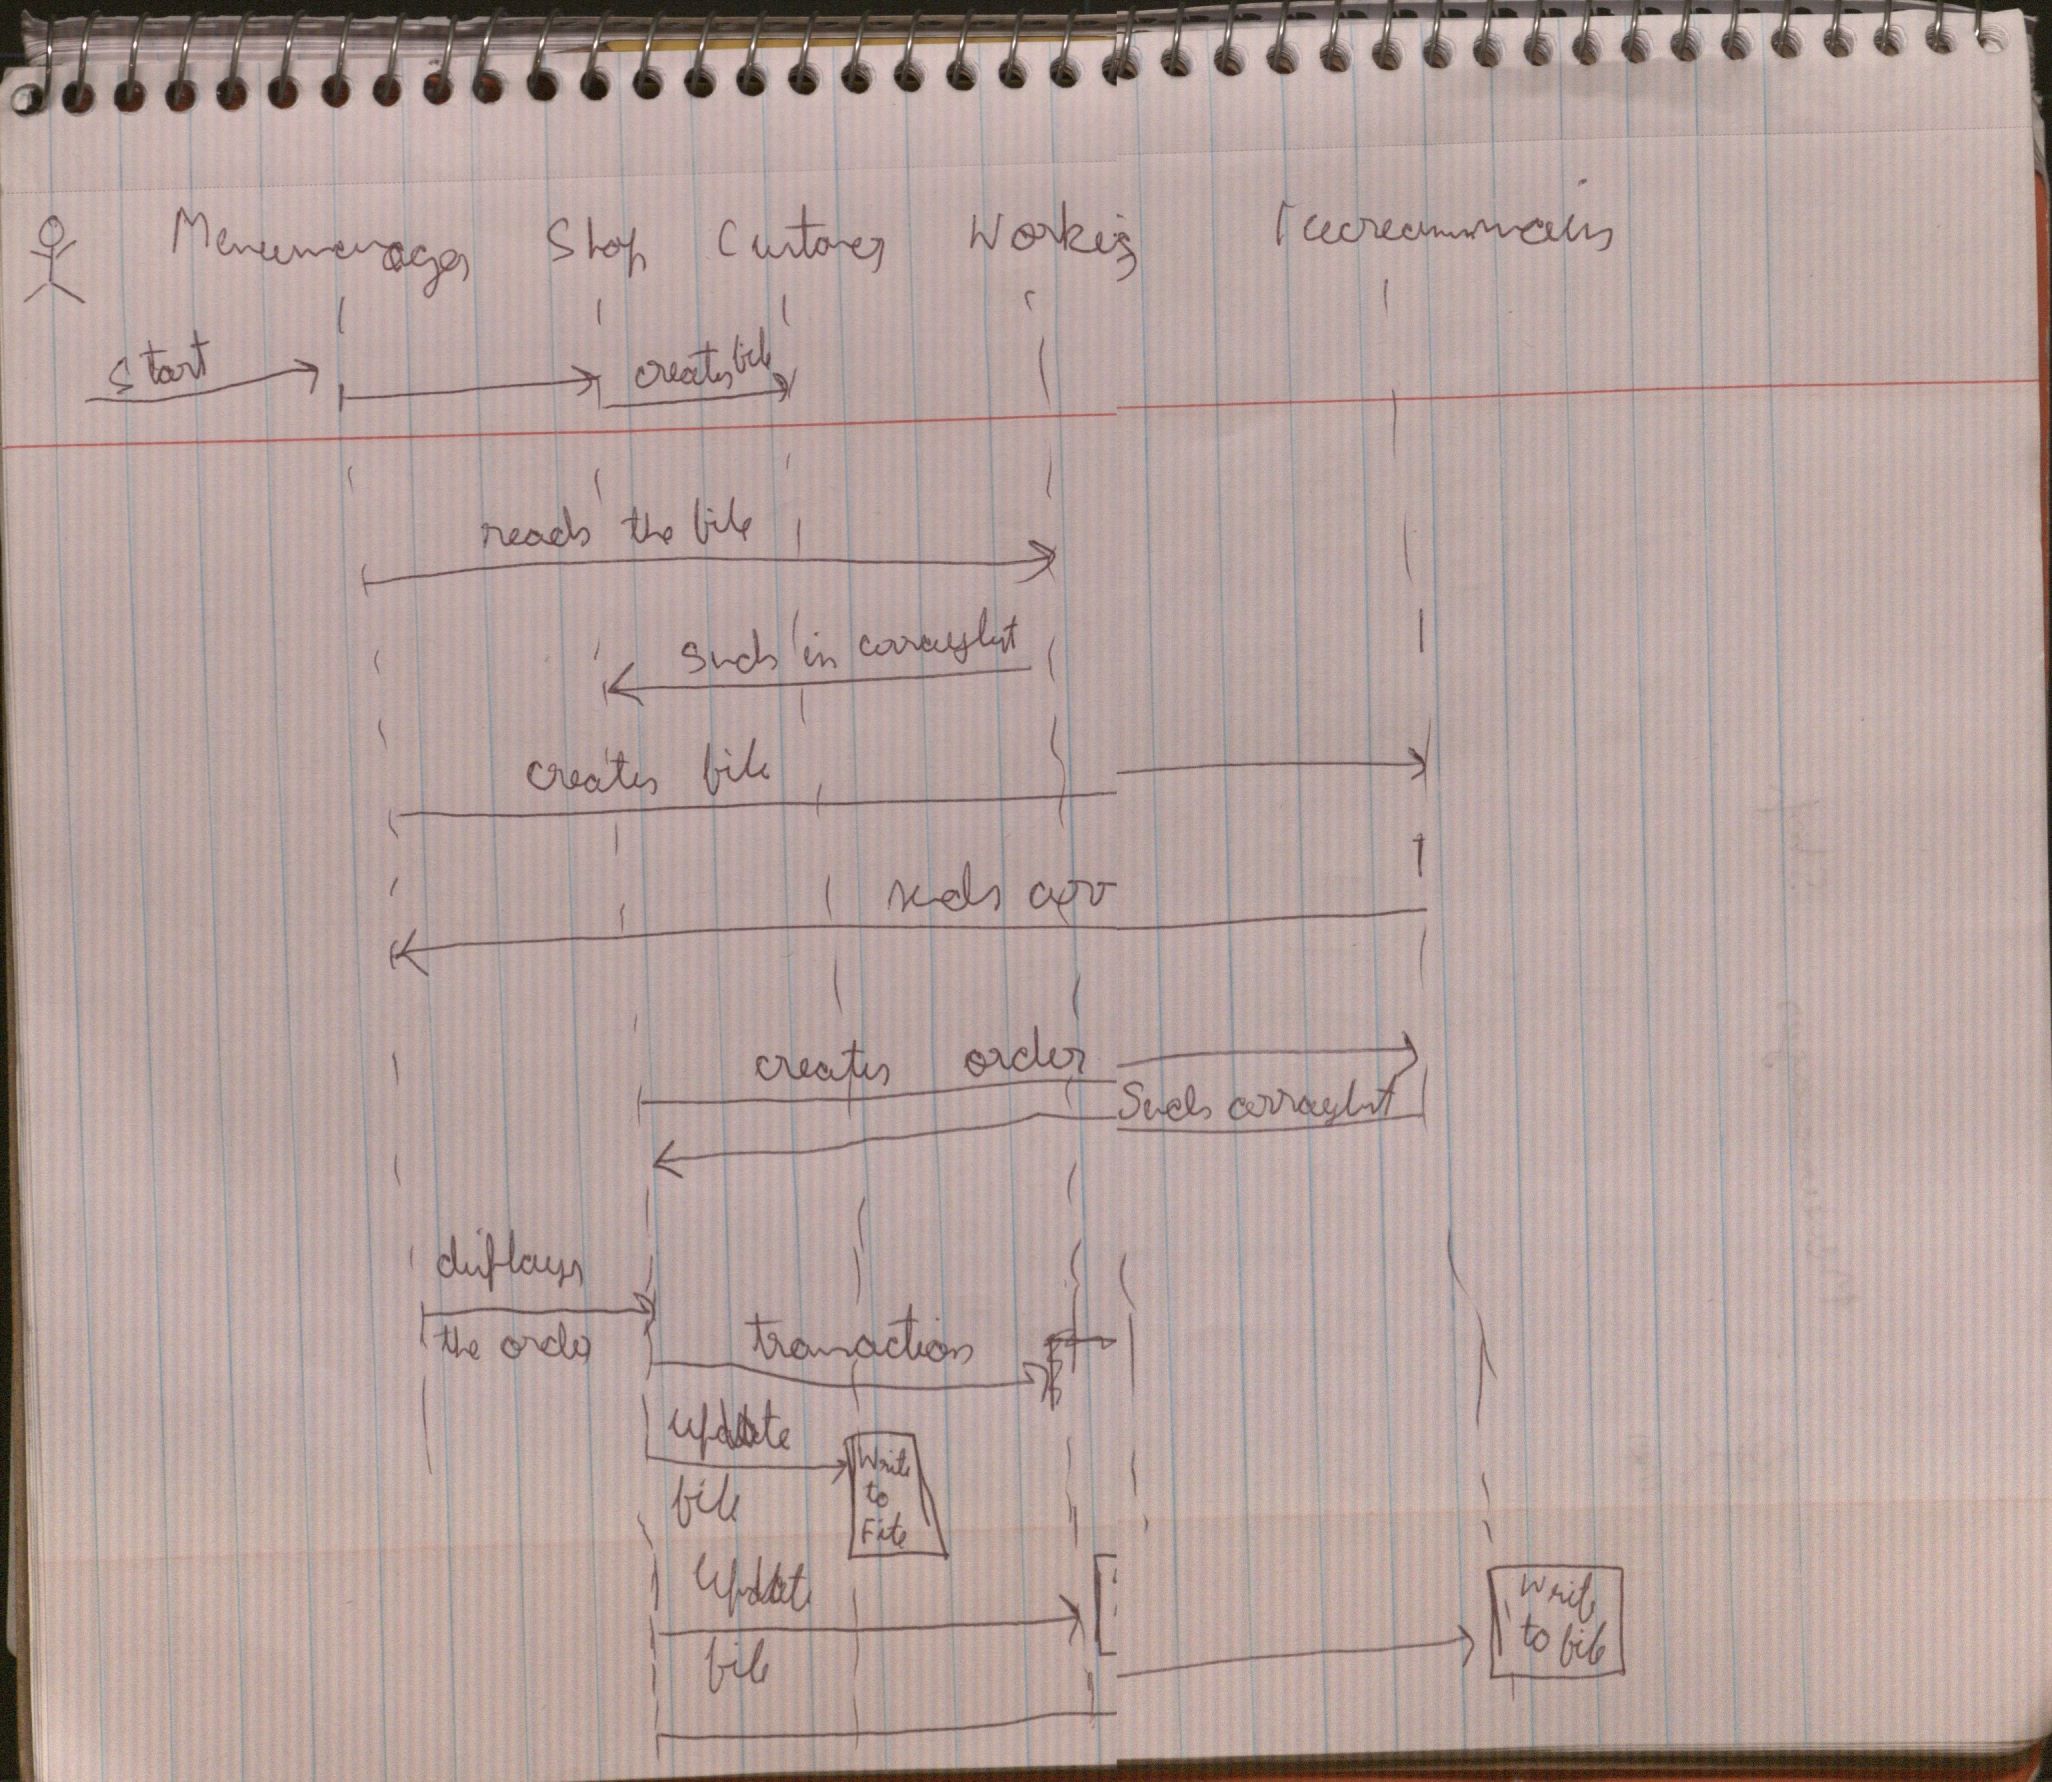 Menumanager Shop Customer Worker
start
creates file
reads the file
Sends in arraylist
creates file
sends arr
creates order
Sends arraylist
displays
the order
transaction
update
file
Write
to
File
Update
file
Write
to file